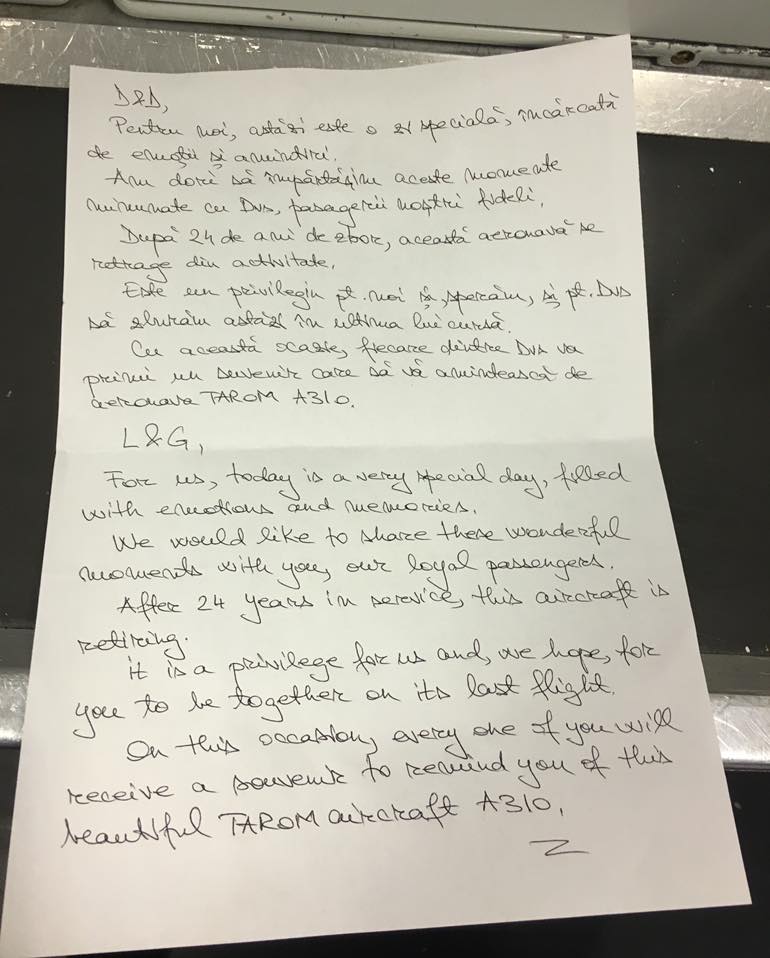 D&D,
Pentru noi, astăzi este o zi specială, încărcată
de emoții și amintiri.
Am dori să împărtășim aceste momente
minunate cu Dvs, pasagerii noștri fideli.
După 24 de ani de zbor, această aeronavă se
retrage din activitate.
Este un privilegiu pt. noi și, sperăm, și pt. Dvs
să zburăm astăzi în ultima lui cursă.
Cu această ocazie, fiecare dintre Dvs va
primi un suvenir care să vă amintească de
aeronava TAROM A310.
L&G,
For us, today is a very special day, filled
with emotions and memories.
We would like to share these wonderful
moments with you, our loyal passengers.
After 24 years in service, this aircraft is
retiring.
it is a privilege for us and, we hope, for
you to be together on its last flight.
On this occasion, every one of you will
receive a souvenir to remind you of this
beautiful TAROM aircraft A310.